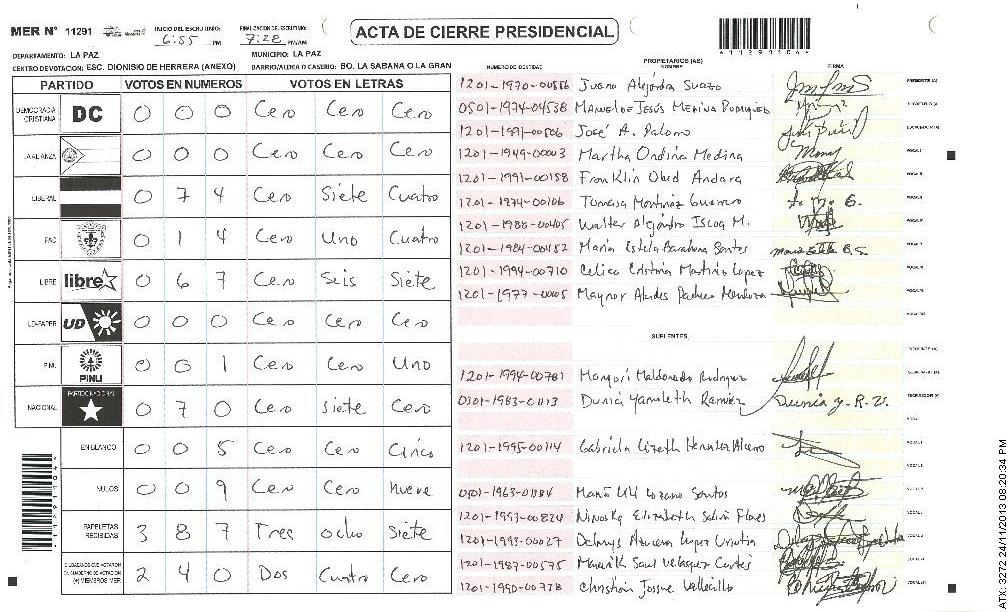 MER Nº 11291 INICIO DEL ESCRUTINIO: 6:55 PM FINALIZACION DE ESCRUTINIO: 7:28 PM/AM
ACTA DE CIERRE PRESIDENCIAL
6112911064
DEPARTAMENTO: LA PAZ MUNICIPIO: LA PAZ
CENTRO DE VOTACION: ESC. DIONISIO DE HERRERA (ANEXO) BARRIO/ALDEA O CASERIO: BO. LA SABANA O LA GRAN
PARTIDO VOTOS EN NUMEROS VOTOS EN LETRAS
DEMOCRACIA CRISTIANA DC 0 0 0 Cero Cero Cero
LA ALIANZA 0 0 0 Cero Cero Cero
LIBERAL 0 7 4 Cero Siete Cuatro
PAC 0 1 4 Cero Uno Cuatro
LIBRE libre 0 6 7 Cero Seis Siete
UD-FAPER UD 0 0 0 Cero Cero Cero
PINU PINU 0 0 1 Cero Cero Uno
NACIONAL PARTIDO NACIONAL 0 7 0 Cero siete Cero
EN BLANCO 0 0 5 Cero Cero Cinco
NULOS 0 0 9 Cero Cero nueve
PAPELETAS RECIBIDAS 3 8 7 Tres ocho Siete
CIUDADANOS QUE VOTARON EN CUADERNO DE VOTACION (+) MIEMBROS MER 2 4 0 Dos Cuatro Cero
PROPIETARIOS (AS)
NUMERO DE IDENTIDAD NOMBRE FIRMA
1201-1970-00556 Juana Alejandra Suazo PRESIDENTE (A)
0501-1974-04538 Manuel de Jesús Medina Rodriguez SECRETARIO (A)
1201-1991-00506 José A. Palomo ESCRUTADOR (A)
1201-1949-00003 Martha Ondina Medina VOCAL I
1201-1991-00158 Franklin Obed Andara VOCAL II
1201-1974-00106 Tomasa Martinez Guerrero
1201-1988-00405 Walter Alejandro Iscoa M.
1201-1984-00452 Maria Estela Barahona Santos
1201-1994-00710 Celica Cristina Martinez Lopez
1201-1977-0005 Maynor Alcides Pacheco Mendoza
SUPLENTES
PRESIDENTE (A)
1201-1994-00781 Margori Maldonado Rodriguez SECRETARIO (A)
0301-1983-01113 Dunia Yamileth Ramirez Dunia y. R. V. ESCRUTADOR (A)
1201-1995-00114 Gabriela Lizeth
0801-1963-01884 Maria Lozano Santos
1201-1993-00824 Elizabeth Flores
1201-1993-00027 Lopez Urrutia
1201-1987-00575 Saul Velasquez Cortés
1201-1990-00778 Christian Josue Vallecillo
ATX-3272 24/11/2013 08:20:34 PM